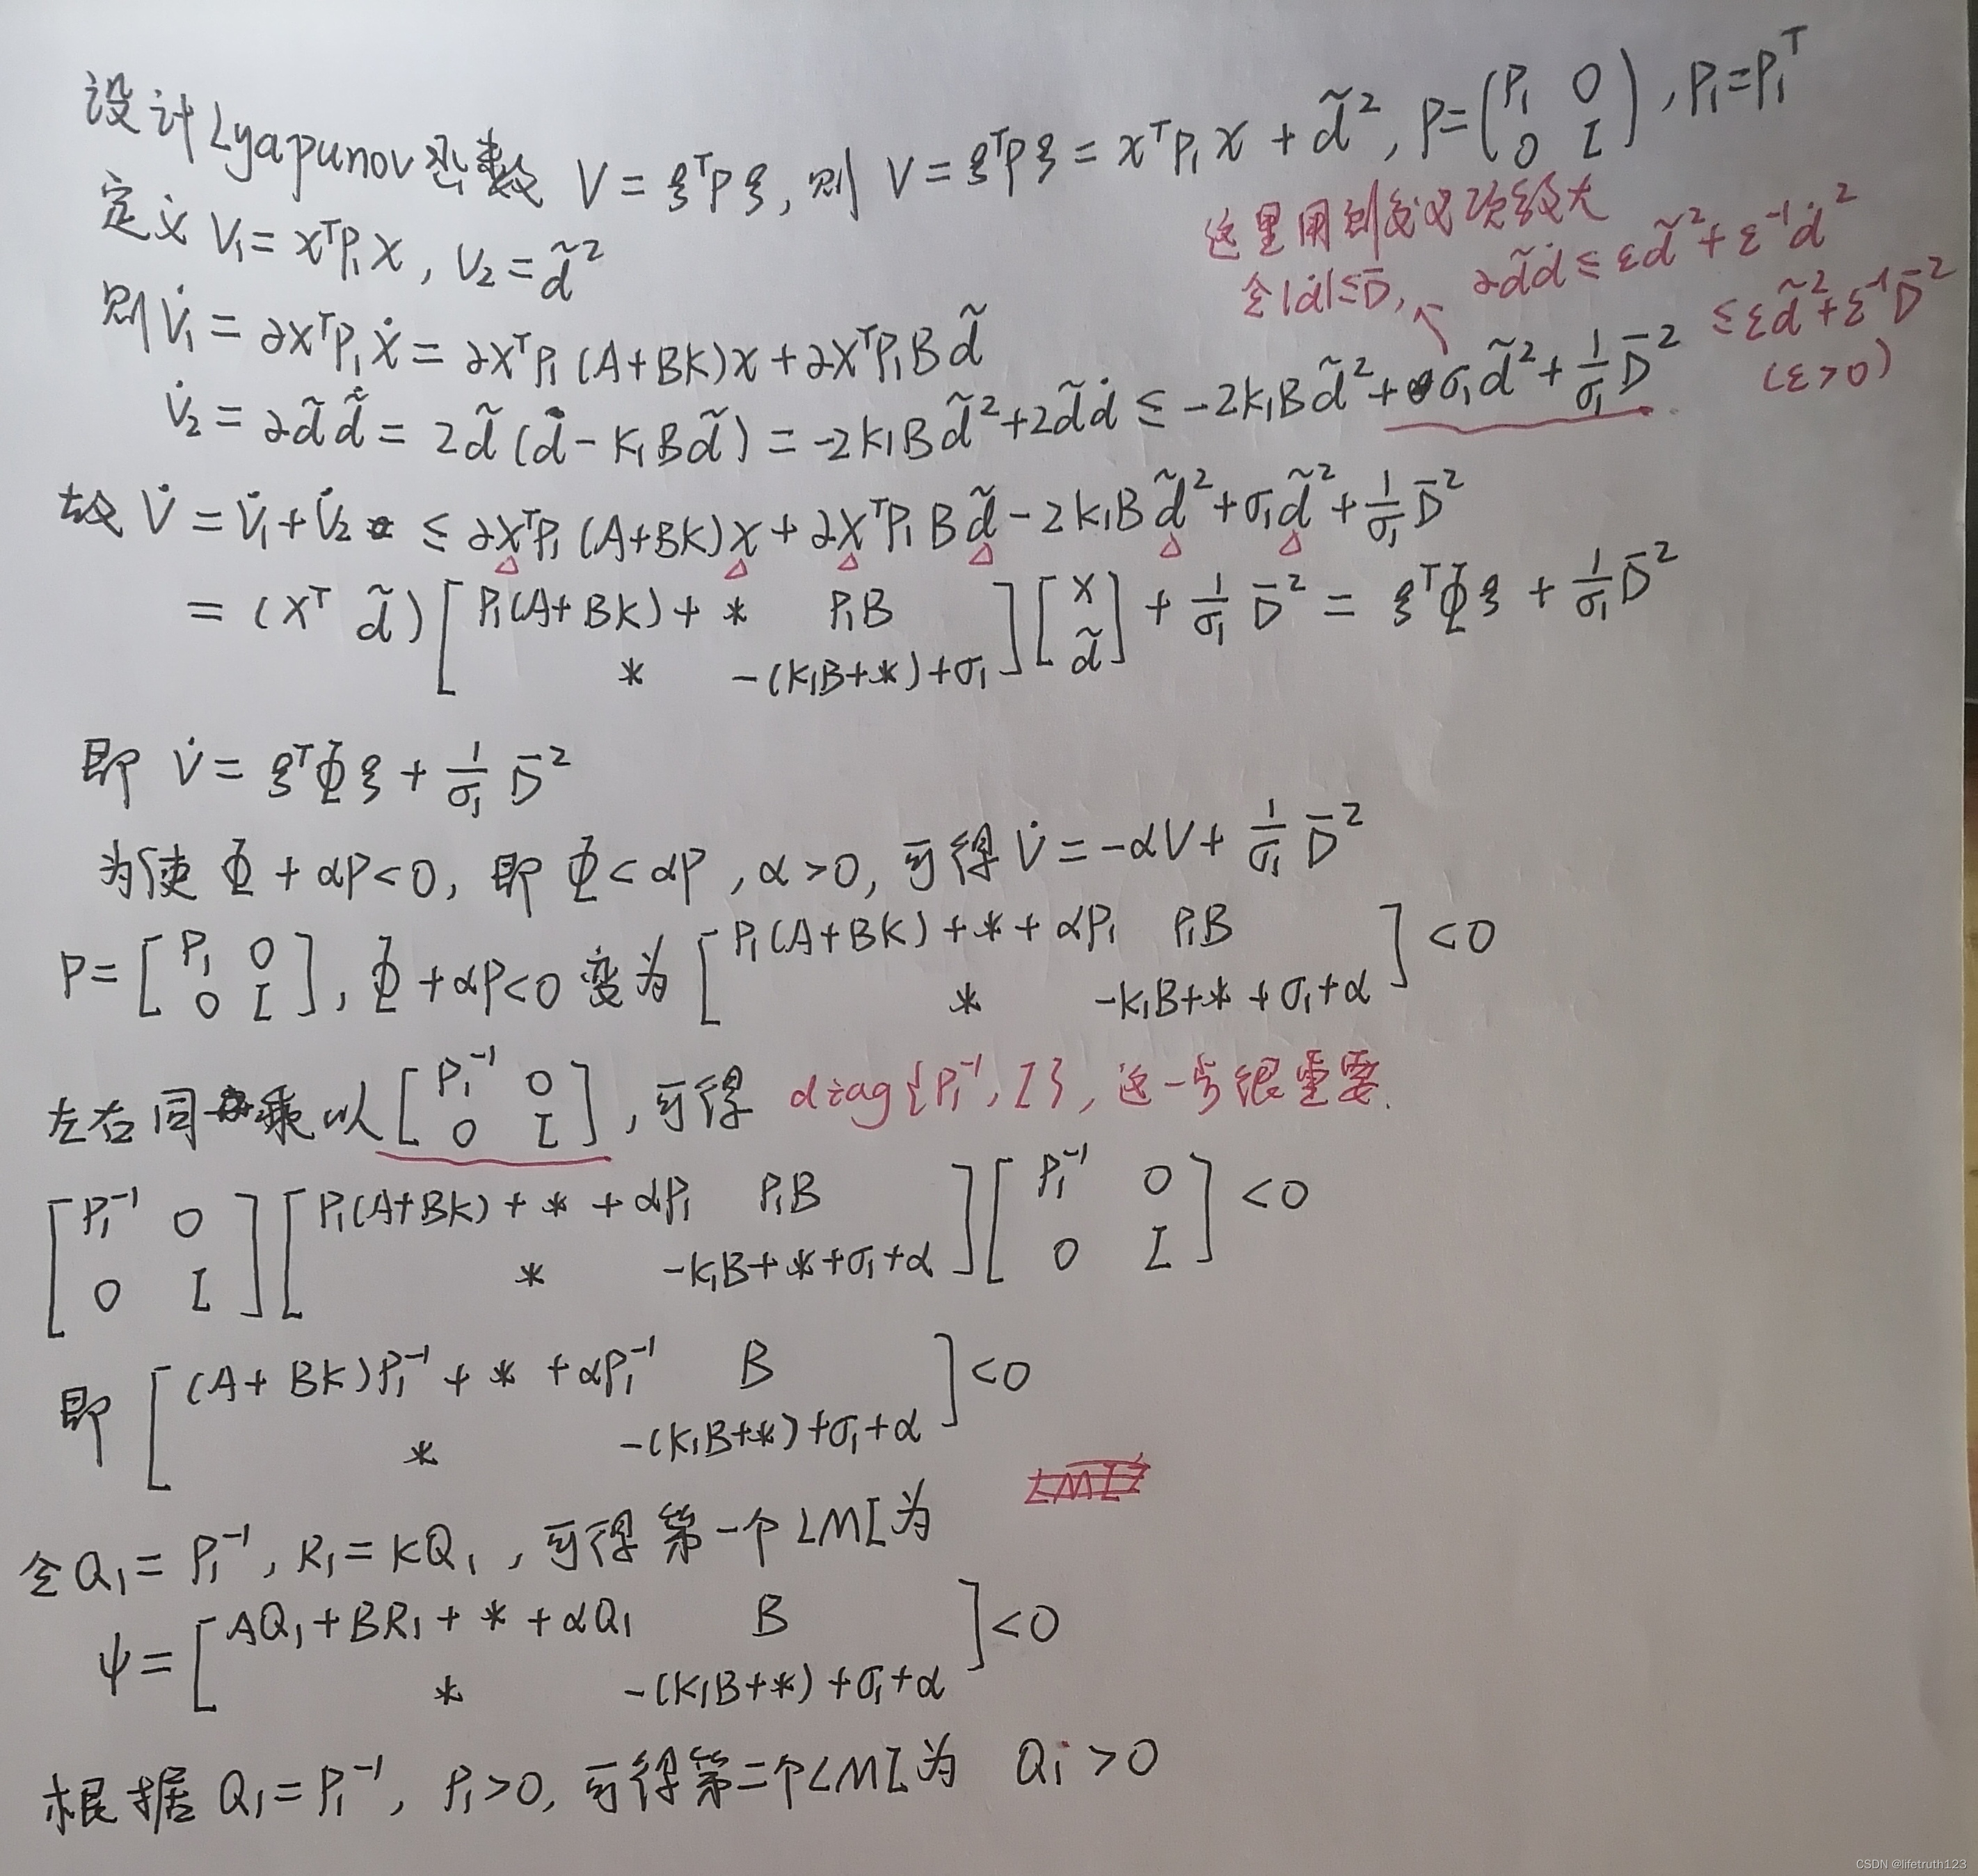 设计Lyapunov函数 V = ξᵀPξ, 则 V = ξᵀPξ = xᵀP₁x + d̃², P = (P₁ 0; 0 I), P₁ = P₁ᵀ
定义 V₁ = xᵀP₁x, V₂ = d̃²
这里用到
令|ḋ| ≤ D̄, 2d̃ḋ ≤ εd̃² + ε⁻¹ḋ²
≤ εd̃² + ε⁻¹D̄²
(ε>0)
则 V̇₁ = 2xᵀP₁ẋ = 2xᵀP₁(A+BK)x + 2xᵀP₁Bd̃
V̇₂ = 2d̃d̃̇ = 2d̃(ḋ - K₁Bd̃) = -2K₁Bd̃² + 2d̃ḋ ≤ -2K₁Bd̃² + σ₁d̃² + 1/σ₁ D̄²
故 V̇ = V̇₁ + V̇₂ ≤ 2xᵀP₁(A+BK)x + 2xᵀP₁Bd̃ - 2K₁Bd̃² + σ₁d̃² + 1/σ₁ D̄²
= (xᵀ d̃) [P₁(A+BK)+* P₁B; * -(K₁B+*)+σ₁] [x; d̃] + 1/σ₁ D̄² = ξᵀΦξ + 1/σ₁ D̄²
即 V̇ = ξᵀΦξ + 1/σ₁ D̄²
为使 Φ + αP < 0, 即 Φ < αP, α > 0, 可得 V̇ = -αV + 1/σ₁ D̄²
P = [P₁ 0; 0 I], Φ + αP < 0 变为 [P₁(A+BK)+*+αP₁ P₁B; * -K₁B+*+σ₁+α] < 0
左右同乘以 [P₁⁻¹ 0; 0 I], 可得 diag{P₁⁻¹, I}, 这一步很重要.
[P₁⁻¹ 0; 0 I] [P₁(A+BK)+*+αP₁ P₁B; * -K₁B+*+σ₁+α] [P₁⁻¹ 0; 0 I] < 0
即 [(A+BK)P₁⁻¹+*+αP₁⁻¹ B; * -(K₁B+*)+σ₁+α] < 0
LMI
令Q₁ = P₁⁻¹, R₁ = KQ₁, 可得第一个LMI为
ψ = [AQ₁+BR₁+*+αQ₁ B; * -(K₁B+*)+σ₁+α] < 0
根据 Q₁ = P₁⁻¹, P₁>0, 可得第二个LMI为 Qi > 0
CSDN @lifetruth123